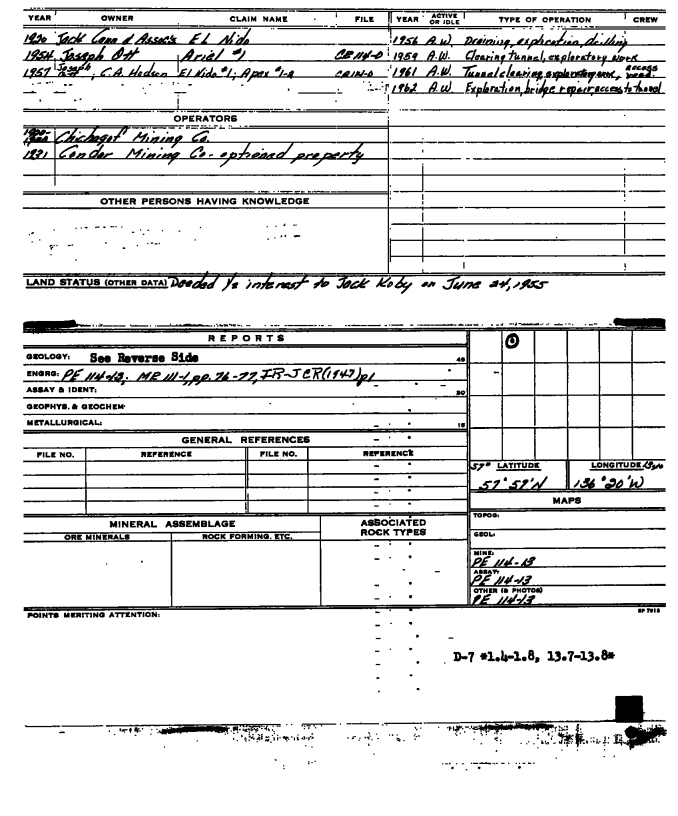 YEAR OWNER CLAIM NAME FILE YEAR ACTIVE OR IDLE TYPE OF OPERATION CREW
1920 Jack Cann & Assoc's El Nido 1956 A.W. Draining, exploration, drilling
1954 Joseph Ott Arial #1 CR 114-D 1959 A.W. Clearing tunnel, exploratory work
1957 Joseph Ott, C.A. Hodson El Nido #1; Apex #1-2 1961 A.W. Tunnel clearing exploratory work, access road.
1962 A.W. Exploration, bridge repair, access to tunnel
OPERATORS
Chichagof Mining Co.
1931 Condor Mining Co - optioned property
OTHER PERSONS HAVING KNOWLEDGE
LAND STATUS (OTHER DATA) Deeded ½ interest to Jack Koby on June 24, 1955
REPORTS
GEOLOGY: See Reverse Side 45
ENGRG: PE 114-13; MR 111-1, pp. 76-77, IR-JCR (1947) p1
ASSAY & IDENT: 30
GEOPHYS. & GEOCHEM:
METALLURGICAL: 15
GENERAL REFERENCES
FILE NO. REFERENCE FILE NO. REFERENCE
57° LATITUDE LONGITUDE
57°57'N 136°20'W
MAPS
MINERAL ASSEMBLAGE ASSOCIATED ROCK TYPES
ORE MINERALS ROCK FORMING, ETC.
TOPOG:
GEOL:
MINE:
PE 114-13
ASSAY:
PE 114-13
OTHER (& PHOTOS)
PE 114-13
POINTS MERITING ATTENTION:
D-7 *1.4-1.8, 13.7-13.8*